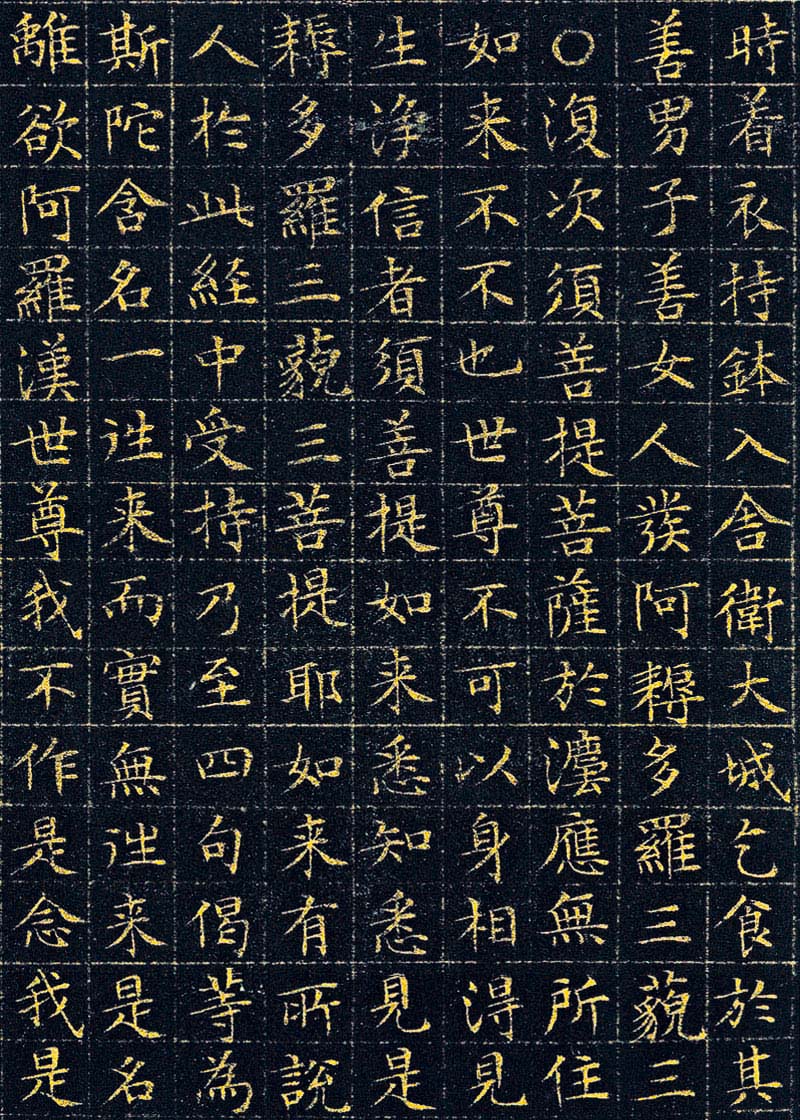 時着衣持鉢入舍衛大城乞食於其
善男子善女人發阿耨多羅三藐三
〇復次須菩提菩薩於灋應無所住
如来不不也世尊不可以身相得見
生浄信者須菩提如来悉知悉見是
耨多羅三藐三菩提耶如来有所説
人於此経中受持乃至四句偈等為
斯陀含名一往来而實無往来是名
離欲阿羅漢世尊我不作是念我是